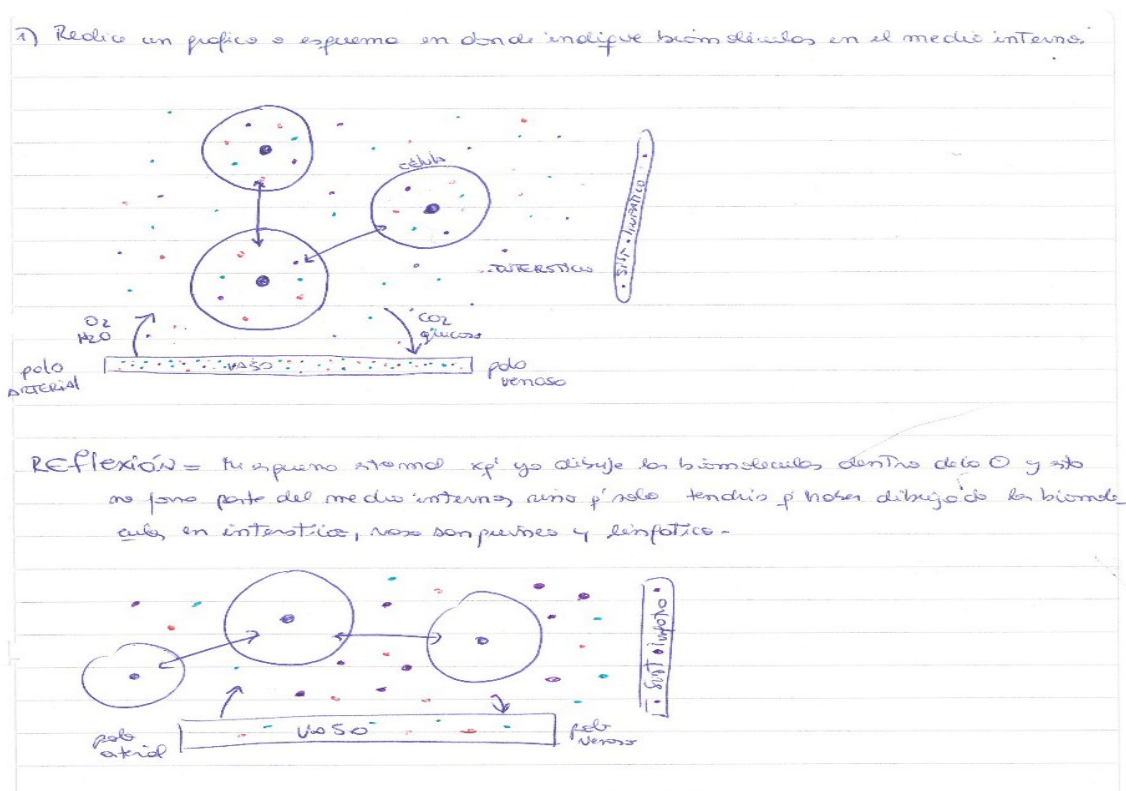 1) Realice un gráfico o esquema en donde indique biomoléculas en el medio interno.
célula
SIST. linfático
INTERSTICIO
O2
H2O
CO2
glucosa
polo
ARTERIAL
VASO
polo
venoso
REflexión = Mi esquema está mal xq' yo dibuje las biomoléculas dentro de la O y esto
no forma parte del medio interno, sino q' solo tendría q' haber dibujado las biomolé_
culas en intersticio, vaso sanguíneo y linfático -
SIST linfático
polo
arterial
VASO
polo
venoso